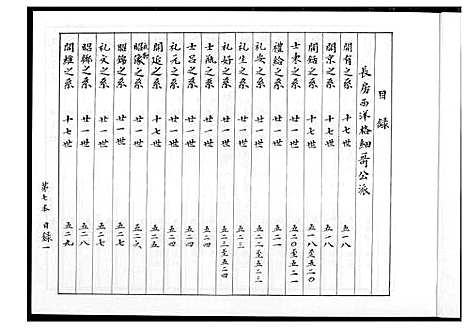 目錄
長房西洋格細哥公派
開有之系 十七世 五一八
開京之系 十七世 五一八
開鈷之系 十七世 五一八至五二〇
士東之系 廿一世 五二〇至五二一
禮給之系 廿一世 五二一
礼安之系 廿一世 五二二至五二三
礼生之系 廿一世 五二三
礼好之系 廿一世 五二三至五二四
士瓶之系 廿一世 五二四
士呂之系 廿一世 五二四
礼元之系 廿一世 五二四
開近之系 十七世 五二五
昭像之系 廿一世 五二六
昭錦之系 廿一世 五二七
礼文之系 廿一世 五二七
昭鄉之系 廿一世 五二八
開維之系 十七世 五二九
第七本 目錄一